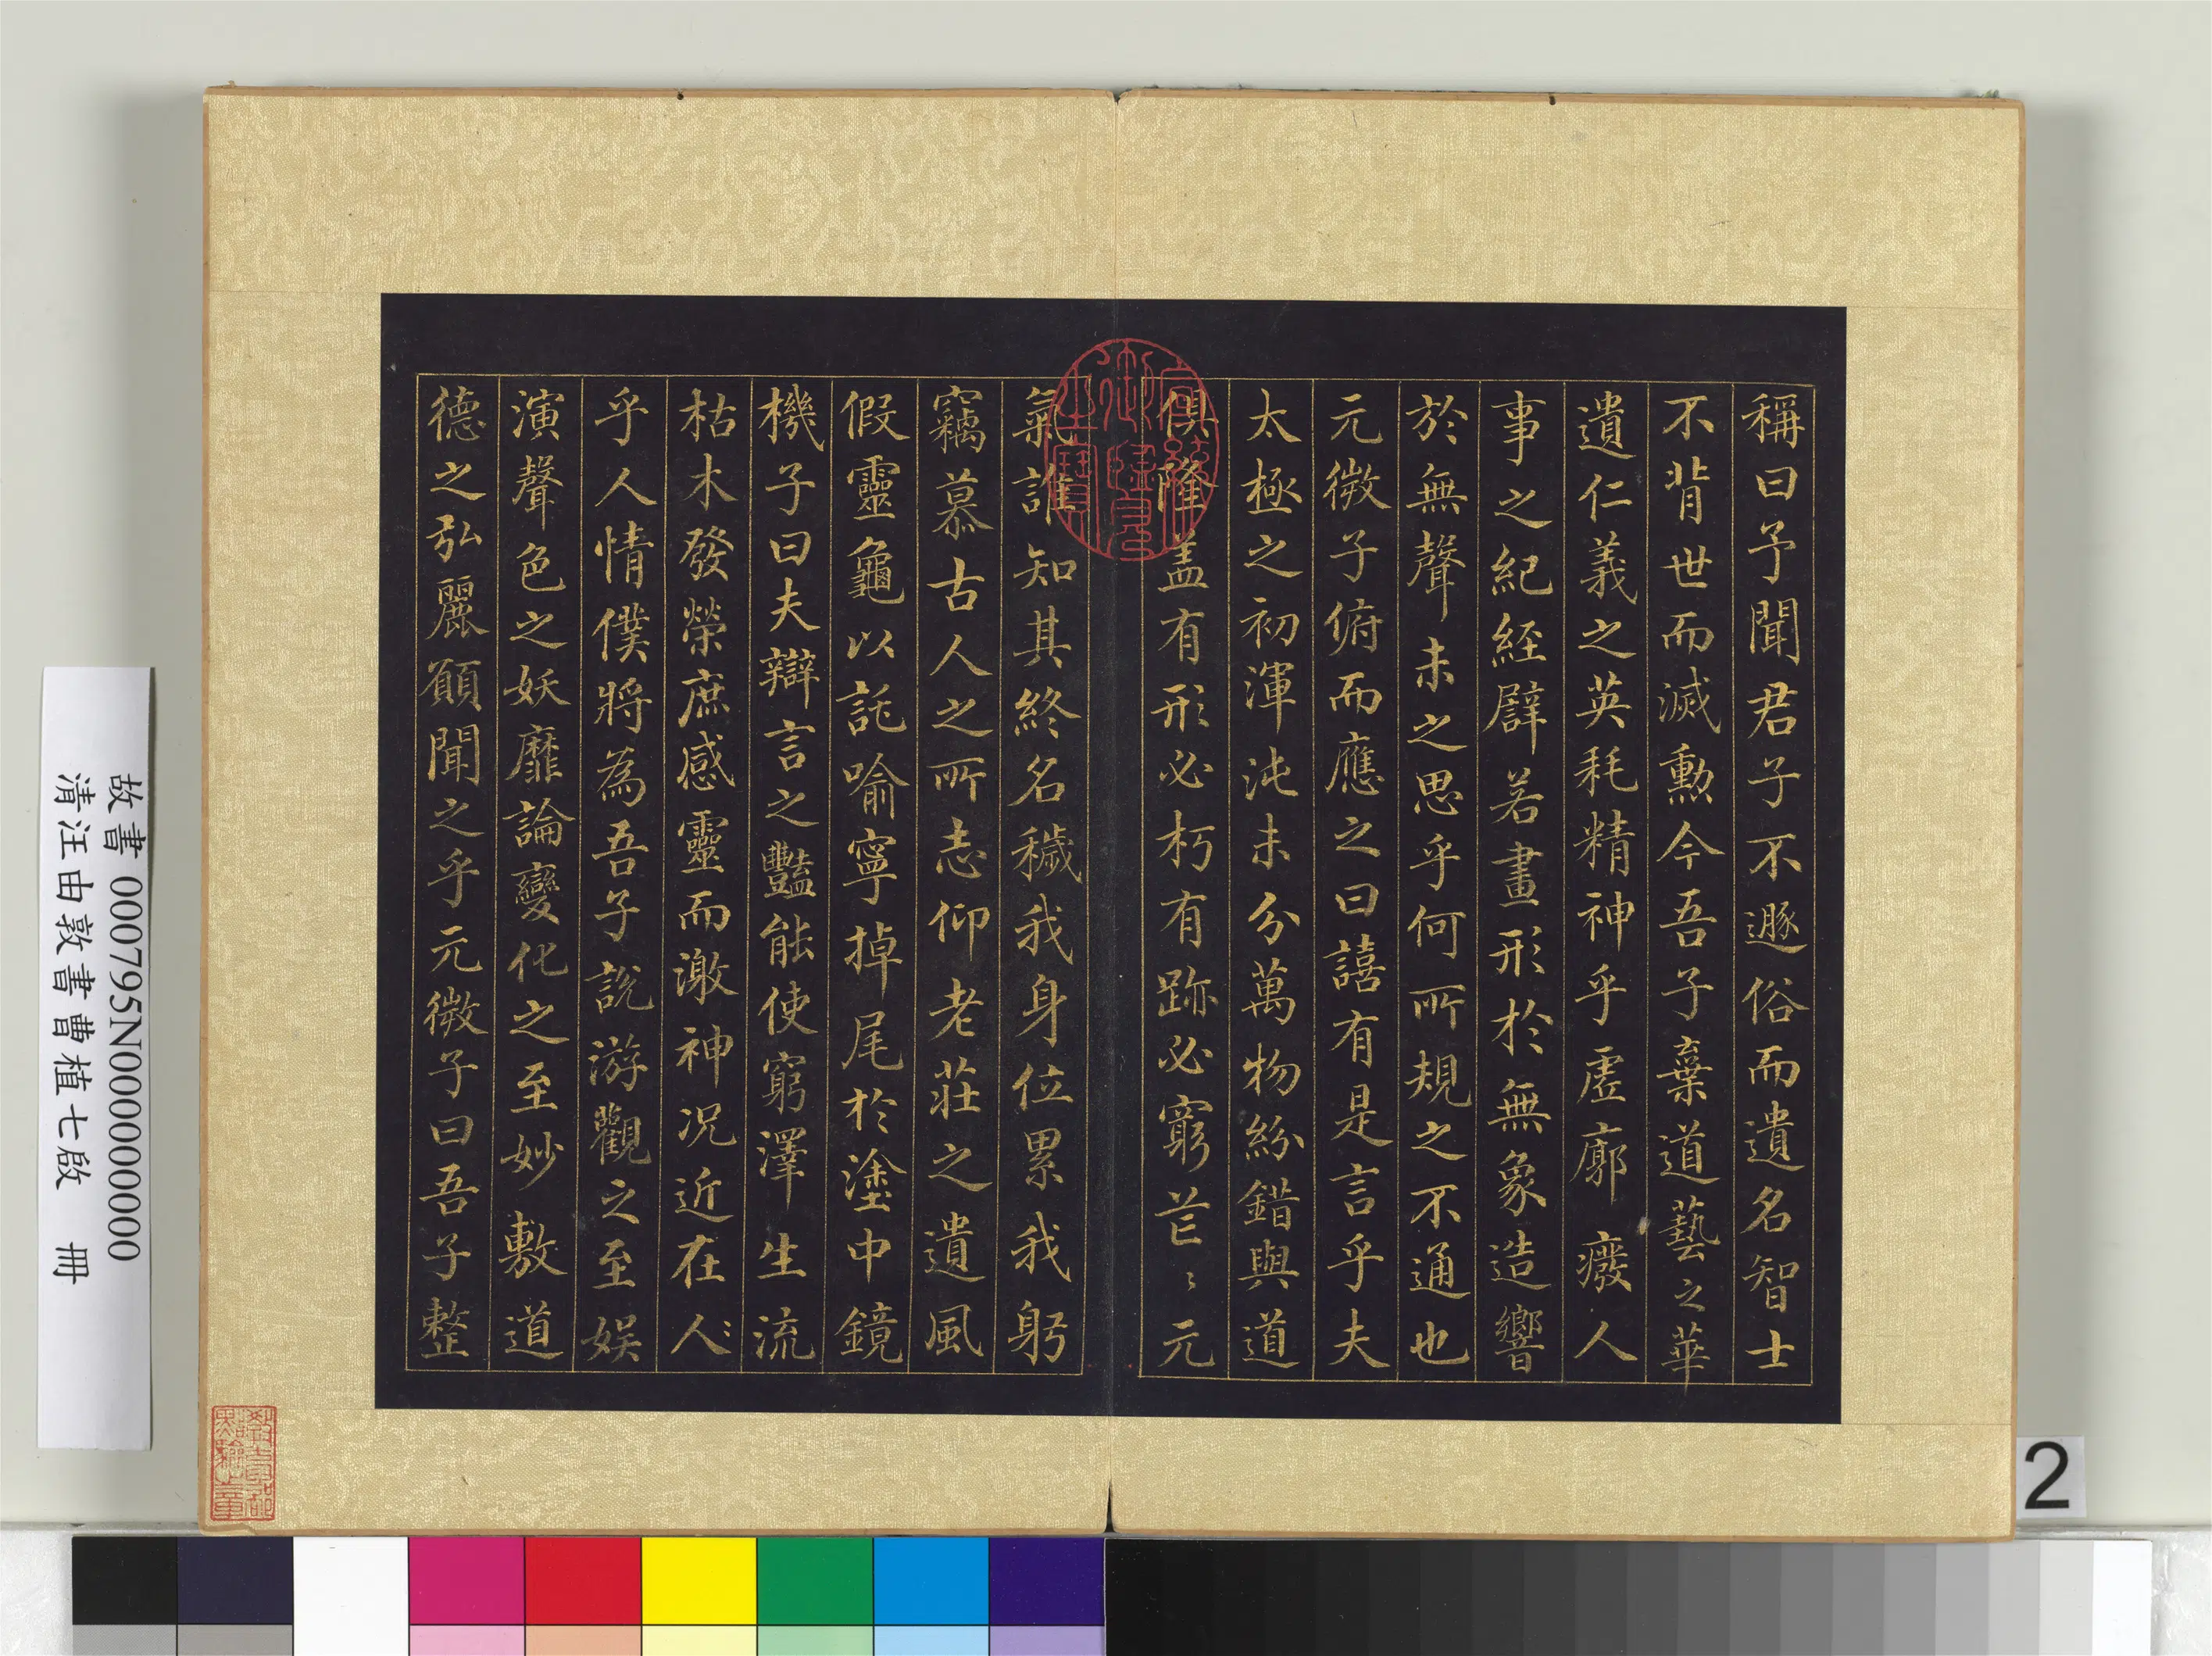 稱曰予聞君子不遯俗而遺名智士
不背世而滅勳今吾子棄道藝之華
遺仁義之英耗精神乎虛廓癈人
事之紀経譬若畫形於無象造響
於無聲未之思乎何所規之不通也
元微子俯而應之曰譆有是言乎夫
太極之初渾沌未分萬物紛錯與道
俱隆盖有形必朽有跡必窮芒〻元
氣誰知其終名穢我身位累我躬
竊慕古人之所志仰老莊之遺風
假靈龜以託喻寧掉尾於塗中鏡
機子曰夫辯言之豔能使窮澤生流
枯木發榮庶感靈而激神况近在人
乎人情僕將為吾子說游觀之至娱
演聲色之妖靡論變化之至妙敷道
德之弘麗願聞之乎元微子曰吾子整
故書 000795N000000000
清汪由敦書曹植七啟 冊
2